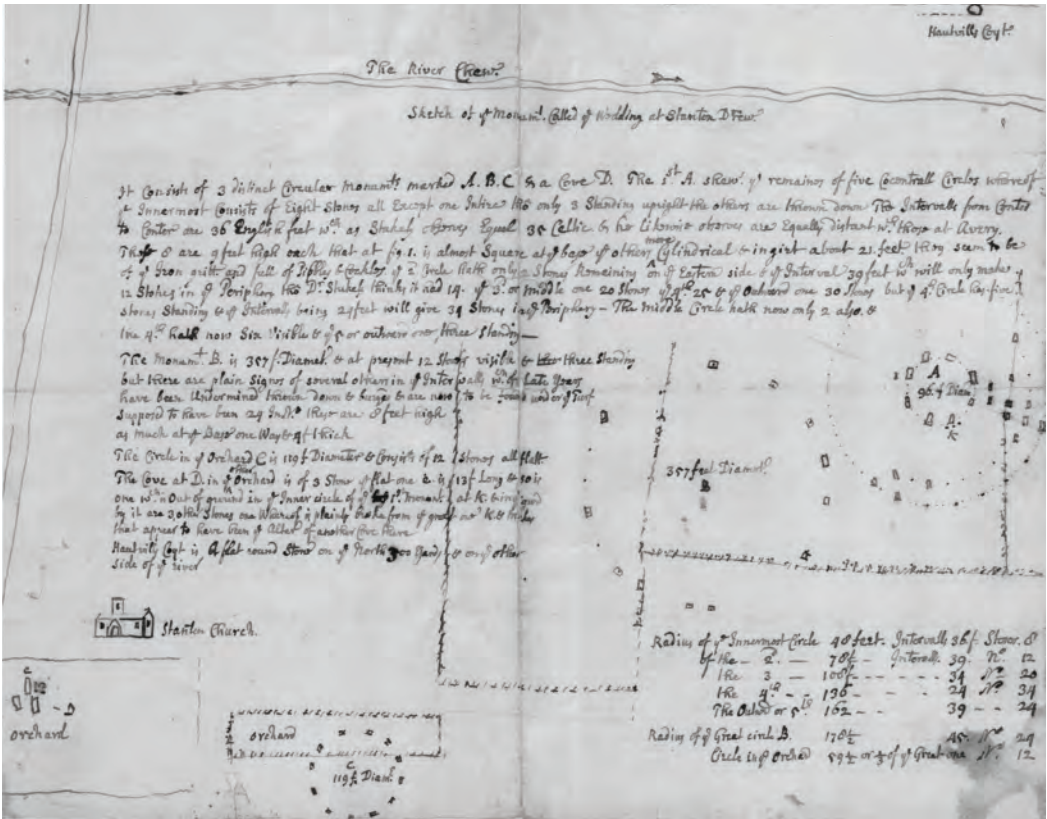 Hautvills Coyt.
The River Chew.
Sketch of yͤ Monumᵗ. Called yͤ Wedding at Stanton Drew.
It Consists of 3 distinct Circular Monumᵗˢ marked A. B. C & a Cove D. The 1ˢᵗ A. shewˢ yͤ remaines of five Cocentrall Circles whereof
yͤ Innermost Consists of Eight Stones all Except one Intire tho only 3 Standing upright the others are thrown down The Intervals from Center
to Center are 36 English feet wᶜʰ as Stukely observes Equal 35 Celtic & he Likewise observes are Equally Distant wᵗʰ those at Avery.
These 8 are 9 feet high each that at fig. 1. is almost Square at yͤ base yͤ others more Cylindrical & in girt about 21. feet they seem to be
of yͤ Iron and full of yͤ 2 Circle Hath only 2 Stones Remeining on yͤ Eastern side & yͤ Interval 39 feet wᶜʰ will only make
12 Stones in yͤ Periphery tho Dʳ. Stukely thinks it had 14. yͤ 3. or middle one 20 Stones yͤ 4ᵗʰ. 25 & yͤ Outward one 30 Stones but yͤ 4ᵗʰ Circle has five
stones Standing & yͤ Intervals being 24 feet will give 34 Stones in yͤ Periphery – The middle Circle hath now only 2 also. &
the 4ᵗʰ. hath now Six Visible & yͤ 5 or outward one, three Standing —
The Monumᵗ. B. is 357 f. Diametʳ. & at present 12 Stones visible & three Standing
but there are plain Signs of several others in yͤ Intervalls wᶜʰ of Late Years
have been Undermind thrown down & buryed & are now to be found under yͤ Turf
Supposed to have been 24 In Nᵒ. these are 8 feet high
as much at yͤ Base one Way & 4 f thick
The Circle in yͤ Orchard C is 119 f Diameter & Consists of 12 Stones all flatt.
The Cove at D. in yͤ other Orchard is of 3 Stones yͤ flat one is 13 f Long & so is
one wᶜʰ is Out of ground in yͤ Inner circle of yͤ 1ˢᵗ. monumᵗ. at K. &
by it are 3 other Stones one Whereof is plainly broke from yͤ great one K &
that appear to have been yͤ Altar of another Cove there
Hautvils Coyt is A flat round Stone on yͤ North 300 Yards & on yͤ other
side of yͤ river
A
96. f Diam
A.
K
357 feet Diametʳ.
B
Stanton Church.
C
D
orchard
orchard
C
119 f. Diamʳ.
Radius of yͤ Innermost Circle 48 feet. Intervalls 36 f. Stones. 8
of the – 2. — 78 f – Intervall. 39. Nᵒ. 12
the 3 — 108 f - - - - - 34 Nᵒ 20
the 4ᵗʰ - - 136 - - - 24 Nᵒ 34
The Outwd or 5ᵗʰ. 162 - - 39 - - 24
Radius of yͤ Great circle B. 178½ 45. Nᵒ 24
Circle in yͤ Orchad 59½ or ⅓ of yͤ Great one Nᵒ. 12